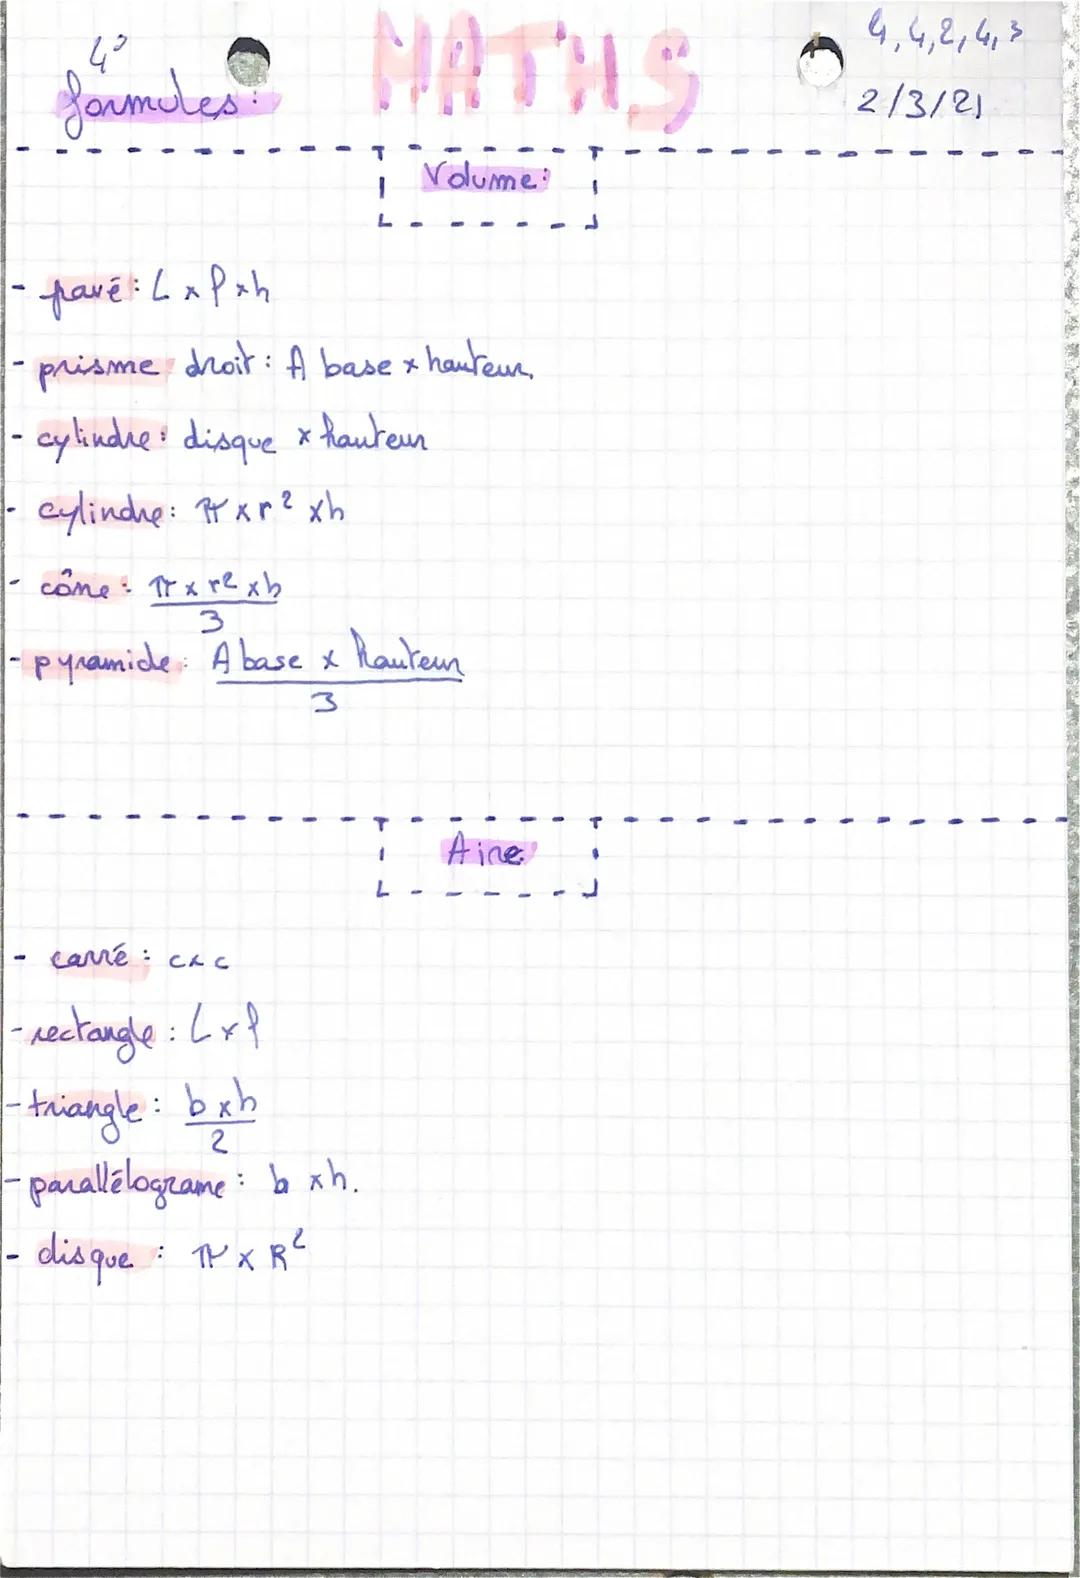 4°
formules:
MATHS
4,4,2,4,3
2/3/21
Volume:
- pavé : L x l x h
- prisme droit : A base x hauteur.
- cylindre : disque x hauteur
- cylindre : π x r² x h
- cône : π x r² x h
3
- pyramide : A base x hauteur
3
Aire
- carré : c x c
- rectangle : L x l
- triangle : b x h
2
- parallélograme : b x h.
- disque : π x R²